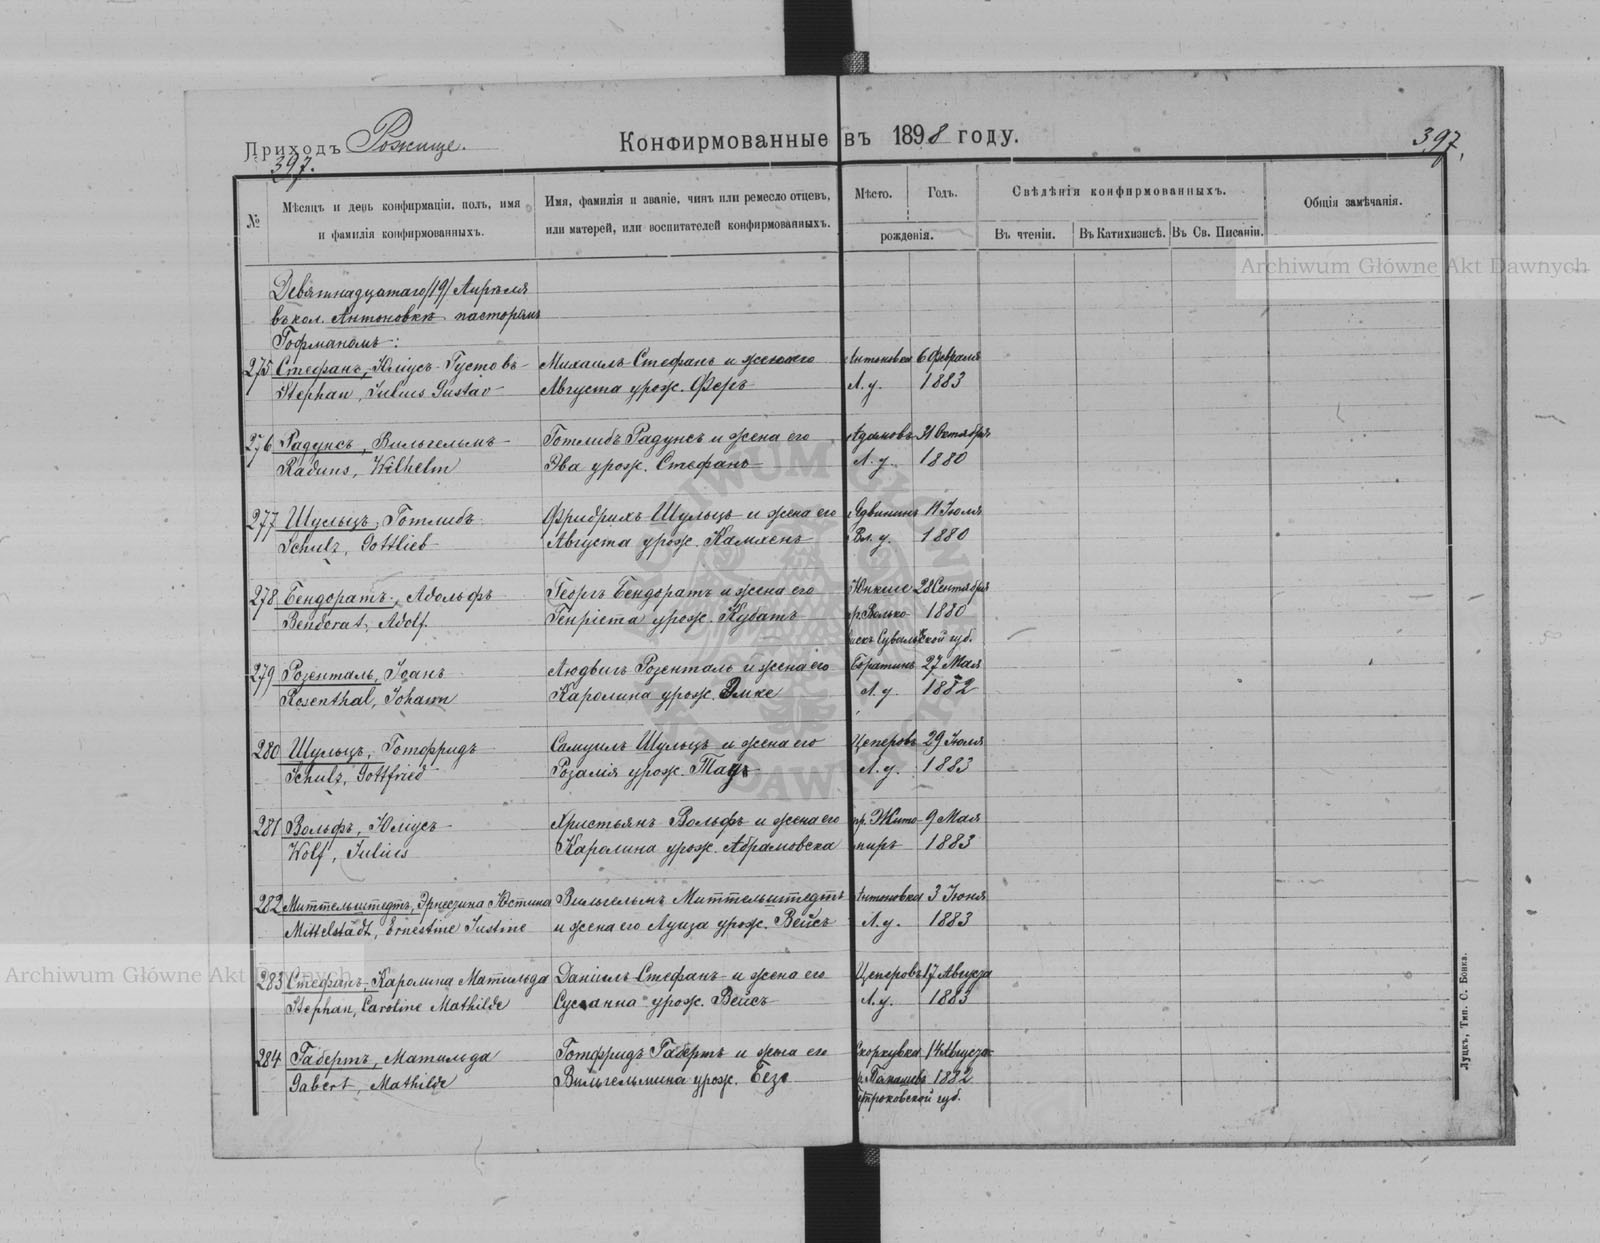 Приходъ Рожище.
Конфирмованные въ 1898 году.
397.
397.
№
Мѣсяцъ и день конфирмаціи, полъ, имя
и фамилія конфирмованныхъ.
Имя, фамилія и званіе, чинъ или ремесло отцевъ,
или матерей, или воспитателей конфирмованныхъ.
Мѣсто.
Годъ.
рожденія.
Свѣдѣнія конфирмованныхъ.
Въ чтеніи.
Въ Катихизисѣ.
Въ Св. Писаніи.
Общія замѣчанія.
Девятнадцатаго /19/ Апрѣля
въ кол. Антоновкѣ пасторомъ
Гофманомъ:
275 Стефанъ, Юліусъ Густовъ Михаилъ Стефанъ и жена его Антоновка 6 Февраля
Stephan, Julius Gustav Августа урож. Ферь Л. у. 1883
276 Радунсъ, Вильгельмъ Готлибъ Радунсъ и жена его Адамовъ 31 Октября
Raduns, Wilhelm Эва урож. Стефанъ Л. у. 1880
277 Шульцъ, Готлибъ Фридрихъ Шульцъ и жена его Ядвининъ 11 Іюля
Schulz, Gottlieb Августа урож. Камхенъ Вл. у. 1880
278 Бендоратъ, Адольфъ Георгъ Бендоратъ и жена его Юнкиле 28 Сентября
Bendorat, Adolf Генріета урож. Кубатъ 1880
Сувальской губ.
279 Розенталь, Іоанъ Людвигъ Розенталь и жена его Боратинъ 27 Мая
Rosenthal, Johann Каролина урож. Эмке Л. у. 1882
280 Шульцъ, Готфридъ Самуилъ Шульцъ и жена его Цеперовъ 29 Іюля
Schulz, Gottfried Розалія урож. Л. у. 1883
281 Вольфъ, Юліусъ Христьянъ Вольфъ и жена его пр. Жито- 9 Мая
Wolf, Julius Каролина урож. Абрамовска миръ 1883
282 Миттельштедтъ, Эрнестина Юстина Вильгельмъ Миттельштедтъ Антоновка 3 Іюня
Mittelstädt, Ernestine Justine и жена его Луиза урож. Вейсъ Л. у. 1883
283 Стефанъ, Каролина Матильда Даніилъ Стефанъ и жена его Цеперовъ 17 Августа
Stephan, Caroline Mathilde Сусанна урож. Вейсъ Л. у. 1883
284 Габертъ, Матильда Готфридъ Габертъ и жена его Скоркувка 14 Августа
Gabert, Mathilde Вильгельмина урож. 1882
Петроковской губ.
Луцкъ, Тип. С. Бонка.
Archiwum Główne Akt Dawnych
Archiwum Główne Akt Dawnych